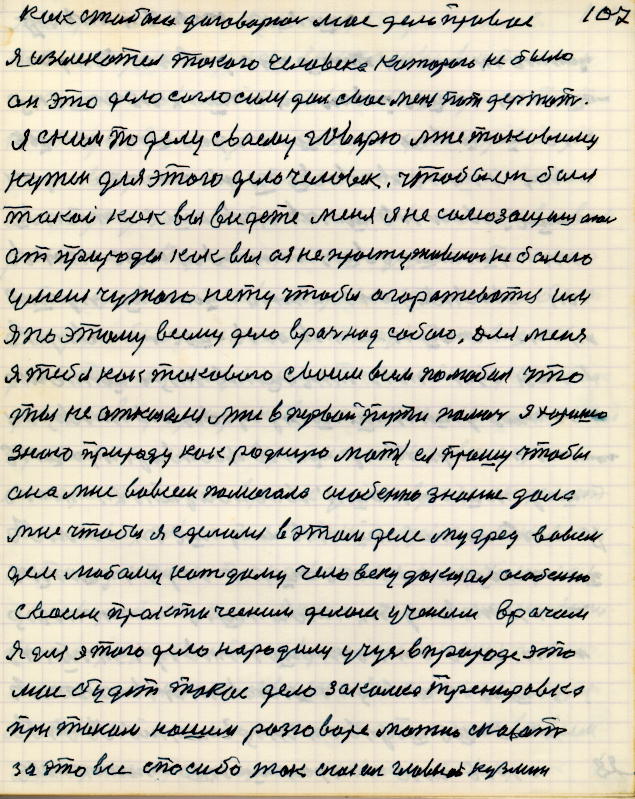 как стобою договарюсь мое дело правое 107
Я взыскател такого человека которого не было
он это дело согласился для свае меня пот держат.
я сним по делу своему говорю мне таковому
нужен для этого дело человек. чтобы он был
такой как вы видете меня я не само защищаюсь
от природы как вы а я не простуживаюсь не болею
уменя чужого нету чтобы огораживатся им
Я по этому всему дело врач над собою, для меня
я тебя как такового своим всем полюбил что
ты не отказался мне в первой пути помоч я хорошо
знаю природу как родную мать ея прошу чтобы
она мне вовсем помогала особенно знание дала
мне чтобы я сделался в этом деле мудрец вовсем
деле любому каждому человеку доказал особенно
своим практическим делом ученым врачам
Я для этого дело народился учуся в природе это
мое будит такое дело закалка тренировка
при таком нашем разговоре можно сказать
за это все спосибо так сказал главный кузмин